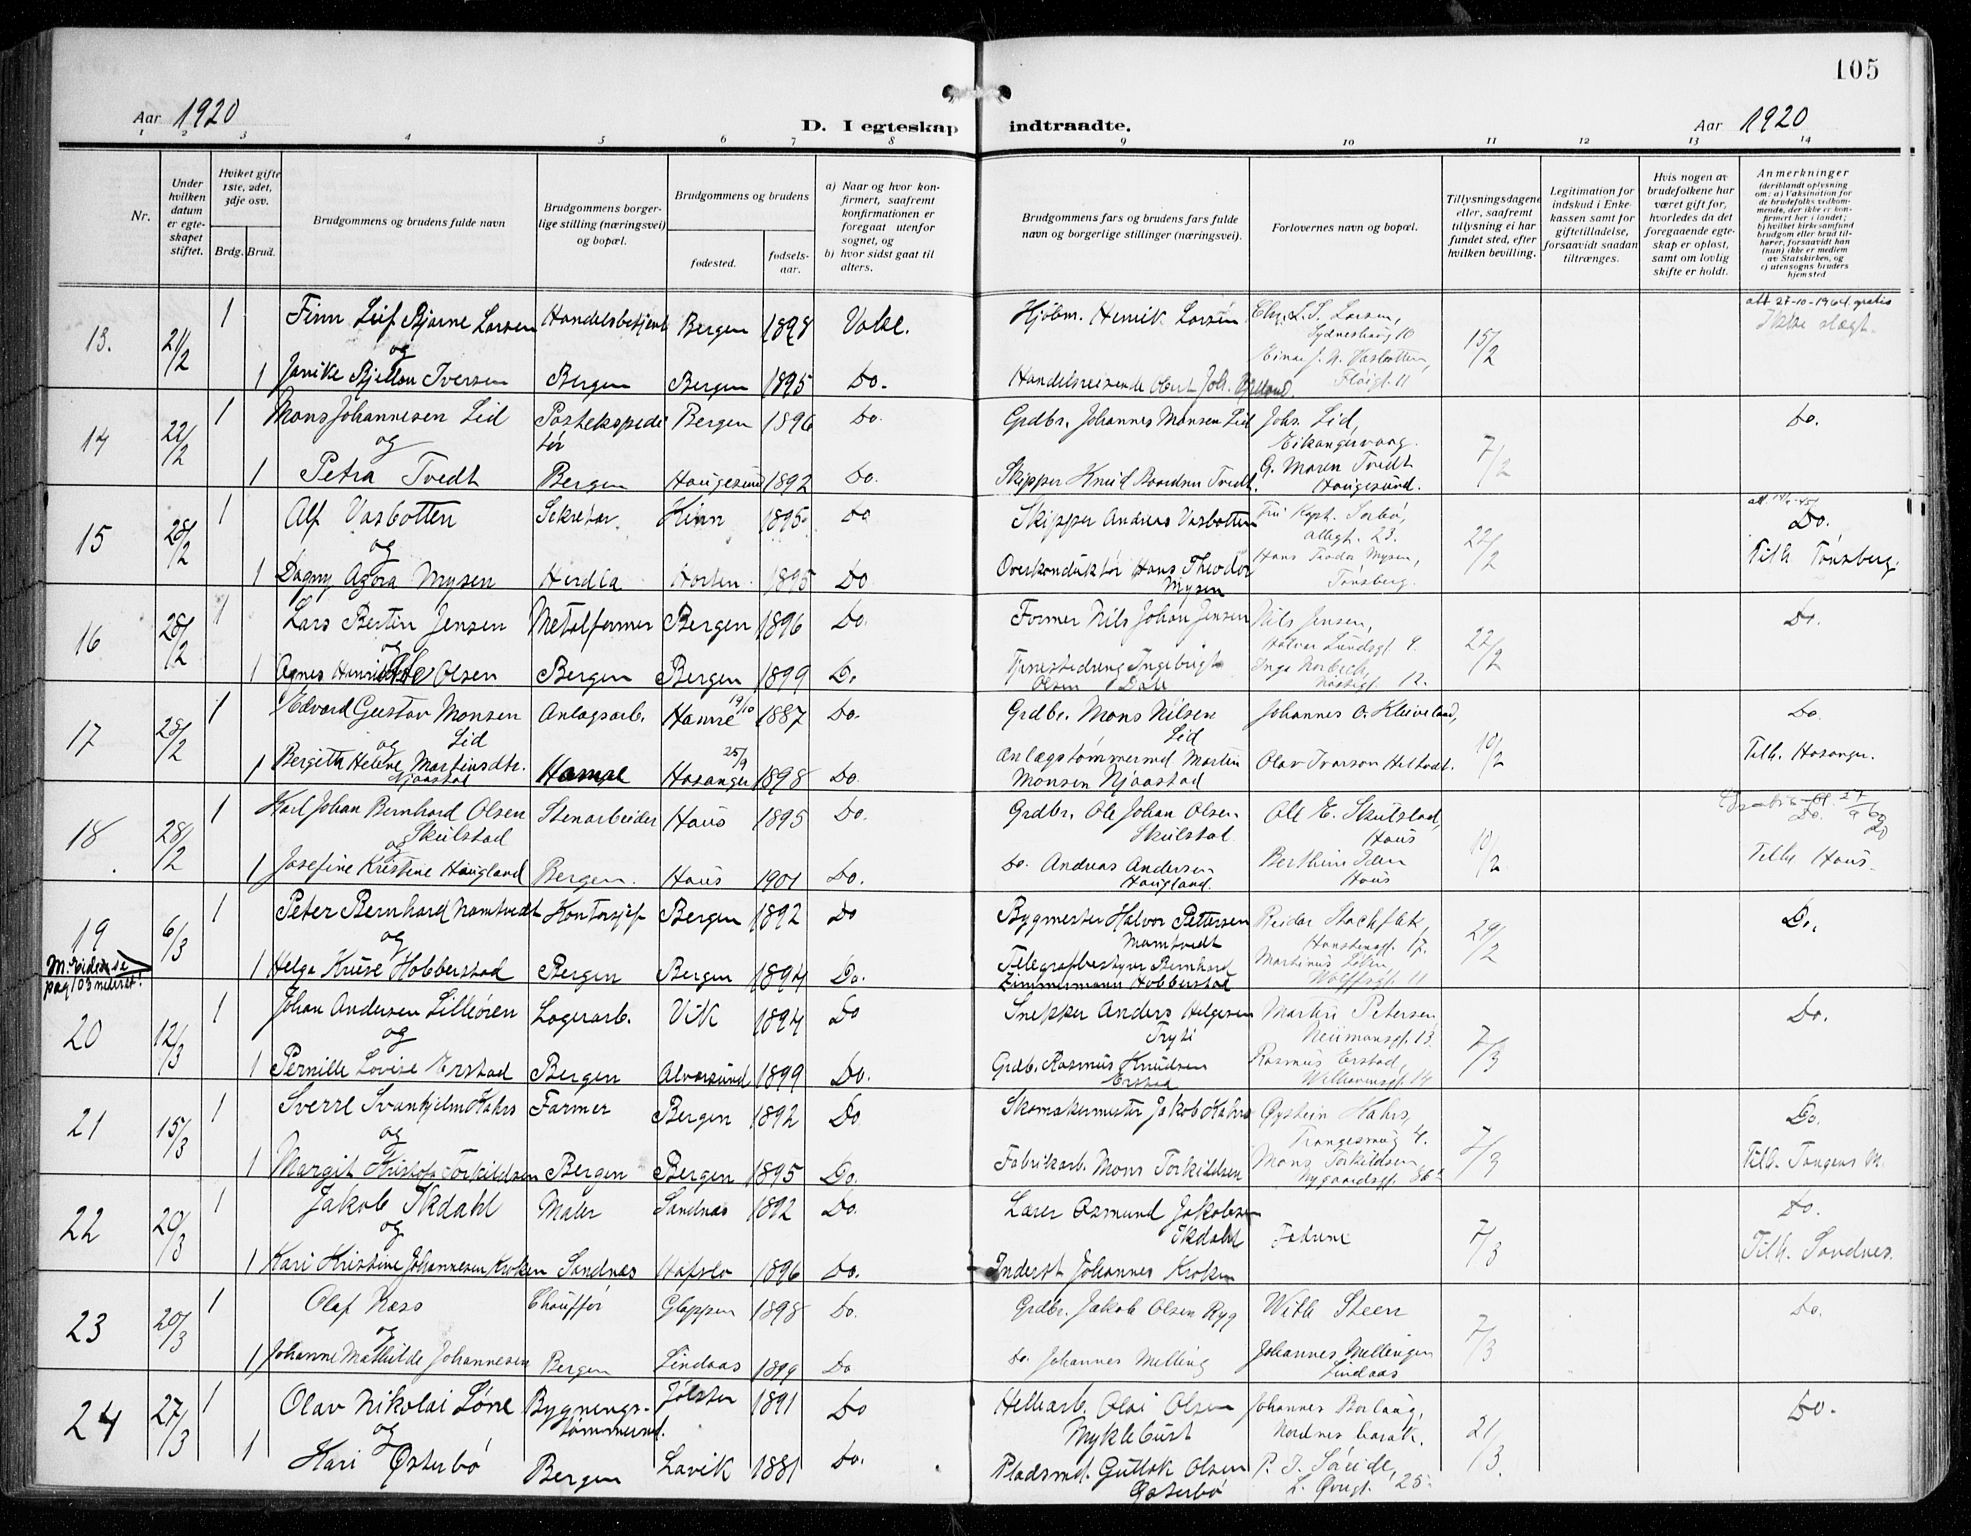 105
Aar 1920
D. I egteskap indtraadte.
Aar 1920
1 2 3 4 5 6 7 8 9 10 11 12 13 14
Nr.
Under hvilken datum er egteskapet stiftet.
Hviket gifte 1ste, 2det, 3dje osv.
Brdg. Brud.
Brudgommens og brudens fulde navn
Brudgommens borgerlige stilling (næringsvei) og bopæl.
Brudgommens og brudens
fødested.
fødselsaar.
a) Naar og hvor konfirmert, saafremt konfirmationen er foregaat utenfor sognet, og
b) hvor sidst gaat til alters.
Brudgommens fars og brudens fars fulde navn og borgerlige stillinger (næringsvei).
Forlovernes navn og bopæl.
Tillysningsdagene eller, saafremt tillysning ei har fundet sted, efter hvilken bevilling.
Legitimation for indskud i Enkekassen samt for giftetilladelse, forsaavidt saadan tiltrænges.
Hvis nogen av brudefolkene har været gift før, hvorledes da det foregaaende egteskap er opløst, samt om lovlig skifte er holdt.
Anmerkninger
(deriblandt oplysning om: a) Vaksination for de brudefolks vedkommende, der ikke er konfirmert her i landet; b) hvilket kirkesamfund brudgom eller brud tilhører, forsaavidt han (hun) ikke er medlem av Statskirken, og c) utensogns bruders hjemsted
13. 21/2 1 Finn Leif Bjarne Larsen Handelsbetjent Bergen 1898 Vake. Hjøbm. Henrik Larsen Chr. L. S. Larsen, 15/2 att 27-10-1964 gratis
Sydneshaug 10 Ikke slegt.
og Einar J. N. Vasbotten,
1 Janike Bjelland Iversen Bergen Bergen 1895 Do. Handelsreisende Fløigt. 11
14 22/2 1 Mons Johannesen Lid Postekspeditør Bergen 1896 Do. Grdbr. Johannes Monsen Lid Johs. Lid, 7/2 Do.
og Eikangervaag.
1 Petra Tvedt Bergen Haugesund 1892 Do. Skipper Knud Baardsen Tvedt. G. Maren Tvedt
Haugesund.
15 28/2 1 Alf Vasbotten Sekretær Kinn 1895 Do Skipper Andreas Vasbotten Fru Kapt. Sørbø, 22/2 Do.
og Allegt. 23.
1 Dagny Agora Mysen Herdla Horten 1895 Do Overkonduktør Hans Theodor Mysen Hans Teodor Mysen, Tønsberg. Tilh Tønsberg.
16 28/2 1 Lars Bertin Jensen Metalformer Bergen 1896 Do. Former Nils Johan Jensen Nils Jensen, 22/2 Do.
og Halvor Lundsgt 9.
1 Agnes Henriette Olsen Bergen Bergen 1899 Do Tjenestedreng Ingebrigt Olsen Dale Inga Norbech, Nøstegt. 12.
17 28/2 1 Edvard Gustav Monsen Lid Anlagsarb. Hamre 19/10 1887 Do. Grdbr. Mons Nilsen Lid Johannes O. Kleiveland, 10/2 Do.
og
1 Bergith Helene Martinsdtr. Njaastad Hamre Hosanger 25/9 1898 Do. Anlægstømmermd Martin Monsen Njaastad Olav Ivarson Helstadt. Tilh. Hosanger.
18 28/2 1 Karl Johan Bernhard Olsen Skulstad Stenarbeider Haus 1895 Do. Grdbr. Ole Johan Olsen Skulstad. Ole E. Skulstad, Haus 10/2 Do.
og
1 Josefine Kristine Haugland Bergen. Haus 1901 Do. Do. Andreas Andersen Haugland. Haus Tilh Haus.
19 6/3 1 Peter Bernhard Namtvedt Kontorsjef Bergen 1892 Do Bygmester Halvor Pettersen Namtvedt Reidar Stockfleth, Hansteensgt. 17. 29/2 Do.
og
pag 103 nederst!
1 Helga Kruse Hobberstad Bergen Bergen 1894 Do. Telegrafbestyrer Bernhard Zimmermann Hobberstad Wolffsgt. 11
20 12/3 1 Johan Andersen Lilleøren Lagerarb. Vik 1894 Do Snekker Anders Helgesen Tryti Martin Petersen Neumansgt. 13. 7/3 Do.
og
1 Pernille Lovise Erstad Bergen Alversund 1899 Do. Grdb. Rasmus Knudsen Erstad Rasmus Erstad, Welhavensgt. 14
21 15/3 1 Sverre Svanhjelm Kahrs Farmer Bergen 1892 Do Skomakermester Jakob Kahrs Øystein Kahrs, 4. 7/3 Do.
og
1 Margit Kristofa Torkildsen Bergen Bergen 1895 Do. Fabrikarb. Mons Torkildsen Mons Torkildsen Nygaardsgt. 86 Tilh. Tangens M.
22 20/3 1 Jakob Ikdahl Maler Sandnes 1892 Do. Lærer Osmund Jakobsen Ikdahl Fædrene 7/3 Do.
og
1 Kari Kristine Johannesen Kroken Sandnes Hafslo 1896 Do. Inderst Johannes Kroken Tilh. Sandnes.
23 20/3 1 Olaf Næss Chauffør Gloppen 1898 Do. Grdbr. Jakob Olsen Ryg With Steen 7/3 Do.
og
1 Johanne Mathilde Johannesen Bergen Lindaas 1899 Do Do. Johannes Melling Johannes Mellingen Lindaas
24 27/3 1 Olav Nikolai Løne Bygningstømmermd. Jølster 1891 Do Hellearb. Olai Olsen Myklebust Johannes Borlaug, Nordnes 21/3 Do.
og
1 Kari Østerbø Bergen Lavik 1881 Do. Pladsmd. Gullak Olsen Østerbø P. J. Søreide, L. Øvregt. 25.